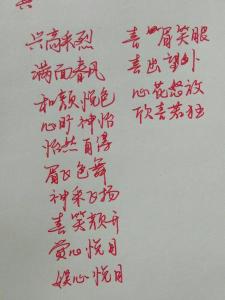 兴高采烈
满面春风
和颜悦色
心旷神怡
怡然自得
眉飞色舞
神采飞扬
喜笑颜开
赏心悦目
娱心悦目
喜眉笑眼
喜出望外
心花怒放
欣喜若狂